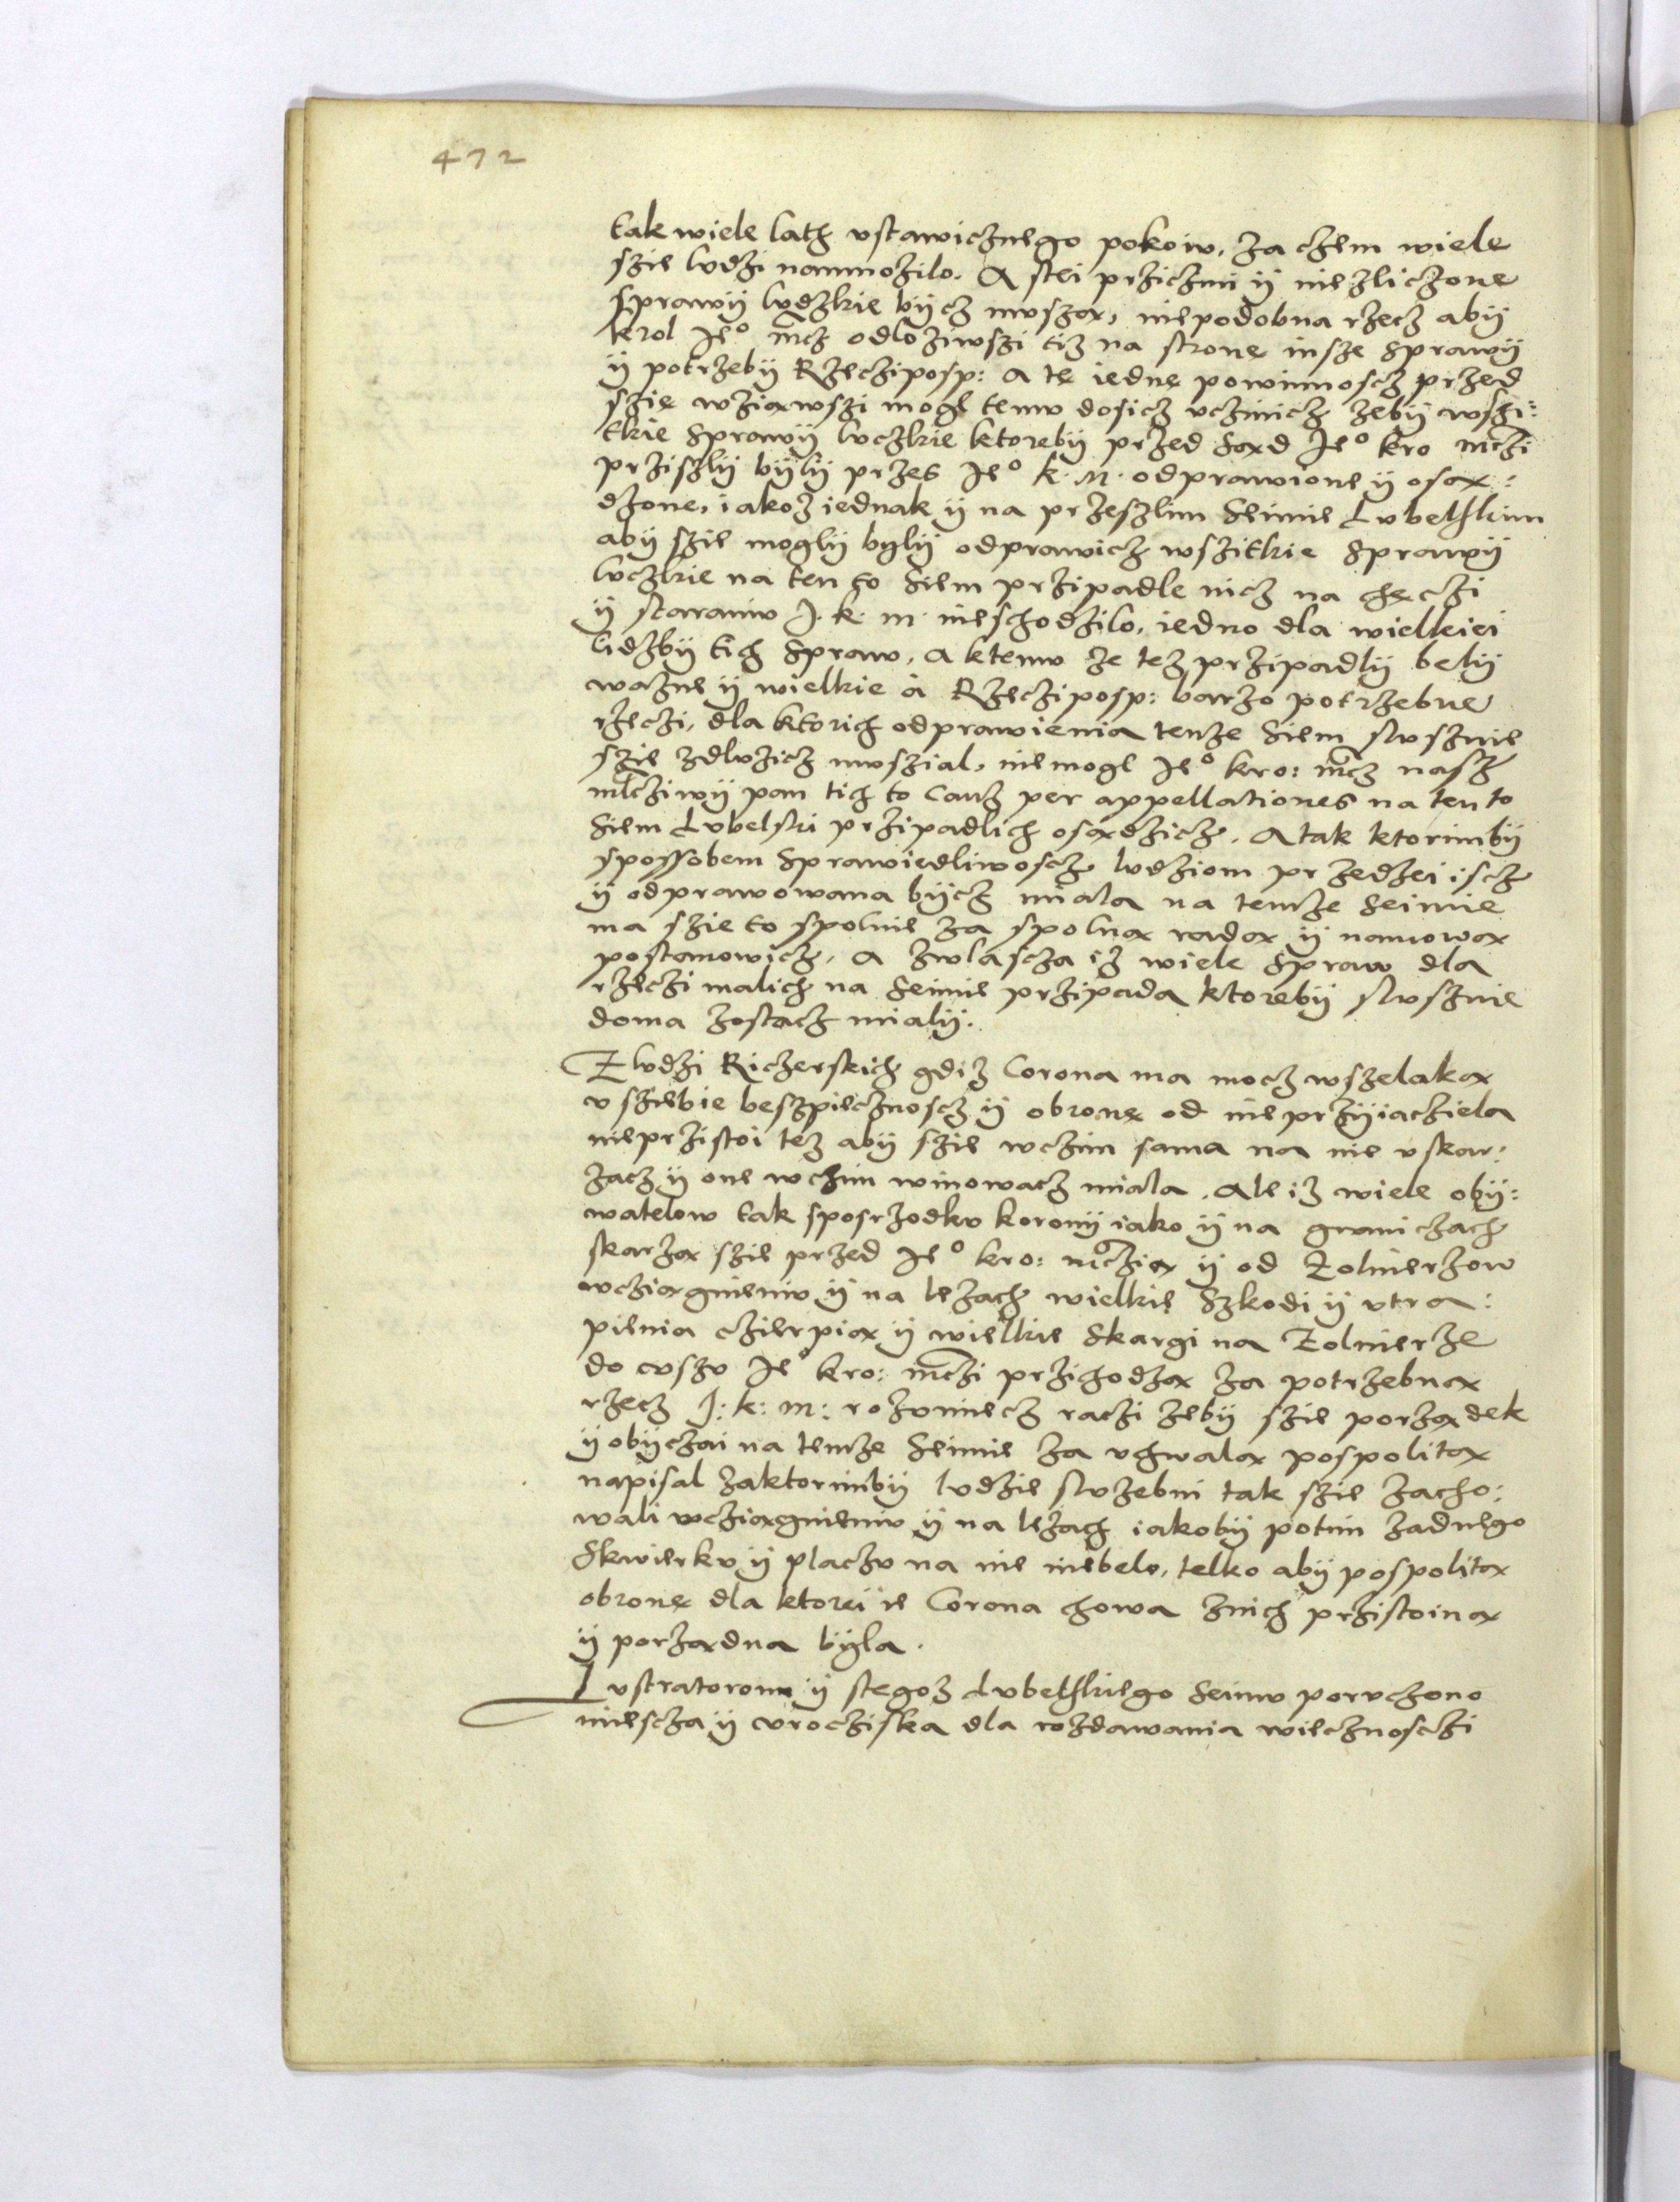 472
tak wiele lath vstawicznego pokoiu, za czem wiele
szie ludzi namnożilo. A stei prziczini ÿ niezliczone
sprawÿ ludzkie bÿcz muszą, niepodobna rzecz abÿ
krol Ieº mcz odlożiwszi tiz na strone insze sprawÿ
ÿ potrzebÿ Rzecziposp: a tę iednę powinnoscz przed
szię wziąwszi mogl temu dosicz vczinicz żebÿ wszi:
tkie sprawÿ luczkie ktorebÿ przed sąd Ieº kro mczi
prziszlÿ bÿlÿ przes Ieº k. m. odprawione ÿ osą:
dzone, iakoż iednak ÿ na przeszlim Seimie Lubelskim
abÿ szie moglÿ bylÿ odprawicz wszitkie sprawÿ
luczkie na ten to Siem przipadle nicz na chęczi
ÿ staraniu J. k. m. nieschodzilo, iedno dla wielkiei
lidzbÿ tich spraw, a ktemu że też przipadlÿ belÿ
ważne ÿ wielkie à Rzecziposp: barzo potrzebne
rzeczi, dla ktorich odprawienia tenże Siem slusznie
szie zdluzicz musial, niemogl Ieº kro: mcz nasz
mlcziwÿ pan tich to cauz per appellationes na ten to
Siem Lubelski przipadlich osądzicz. A tak ktorimbÿ
spossobem sprawiedliwoscz ludziom przedzei iscz
ÿ odprawowana bÿcz miala na temże Seimie
ma szie to spolnie za spolną radą ÿ namową
postanowicz, a zwlascza iż wiele spraw dla
rzeczi malich na Seimie przipada ktorebÿ slusznie
doma zostacz mialÿ.
Z ludzi Riczerskich gdiż Corona ma mocz wszelaką
v sziebie beszpiecznoscz ÿ obronę od nieprzÿiacziela
nieprzistoi też abÿ szie wczim sama na nie vskar:
zacz ÿ one wczim winowacz miala. Ale iż wiele obÿ:
watelow tak sposrzodku koronÿ iako ÿ na graniczach
skarżą szie przed Ieº kro: mczią ÿ od Żolnierzow
wcziągnieniu ÿ na leżach wielkie Szkodi ÿ vtra:
pienia czierpią ÿ wielkie skargi na Żolnierze
do vszu Ieº kro: mczi przichodzą za potrzebną
rzecz J: k: m: rozumiecz raczi żebÿ szie porządek
ÿ obÿczai na temże Seimie za vchwalą pospolitą
napisal zaktorimbÿ ludzie slużebni tak szie zacho:
wali wcziągnieniu ÿ na leżach iakobÿ potim żadnego
skwierku ÿ placzu na nie niebelo, telko abÿ pospolitą
obronę dla ktorei ie Corona chowa znich przistoiną
ÿ porządna bÿla.
Lustratorom ÿ stegoż Lubelskiego Seimu poruczono
miescza ÿ vrocziska dla rozdawania wiecznosczi